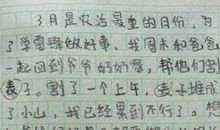 3月是农活最重的月份，为
了学雷锋做好事，我周末和爸爸
一起回到爷爷奶奶家，帮他们割
麦子。割了一个上午，麦子堆成
了小山，我已经累到不行了。